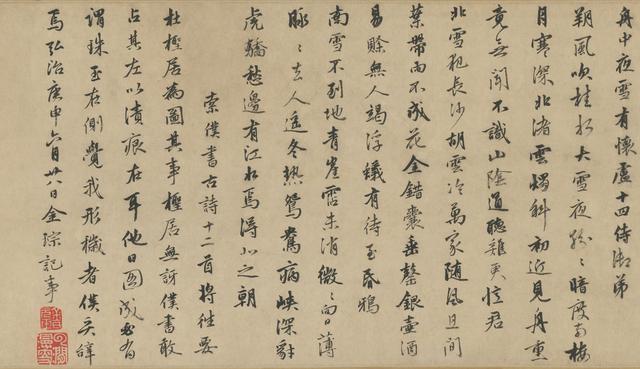 舟中夜雪有懷盧十四侍御弟
朔風吹桂水大雪夜紛〻暗度南樓
月寒深北渚雲燭斜初近見舟重
竟無聞不識山陰道聽雞更憶君
北雪犯長沙胡雲冷萬家随風且間
葉帶雨不成花金錯囊垂罄銀壺酒
易賒無人竭浮蟻有待至昏鴉
南雪不到地青崖霑未消微〻向日薄
脉〻去人遥冬熱鴛鴦病峽深豺
虎驕愁邊有江水焉得北之朝
索僕書古詩十二首將往要
杜檉居為圖其事檉居無訝僕書敢
占其左以漬痕在耳他日圖成必有
謂珠玉在側覺我形穢者僕奚辭
焉弘治庚申六月廿八日金琮記事